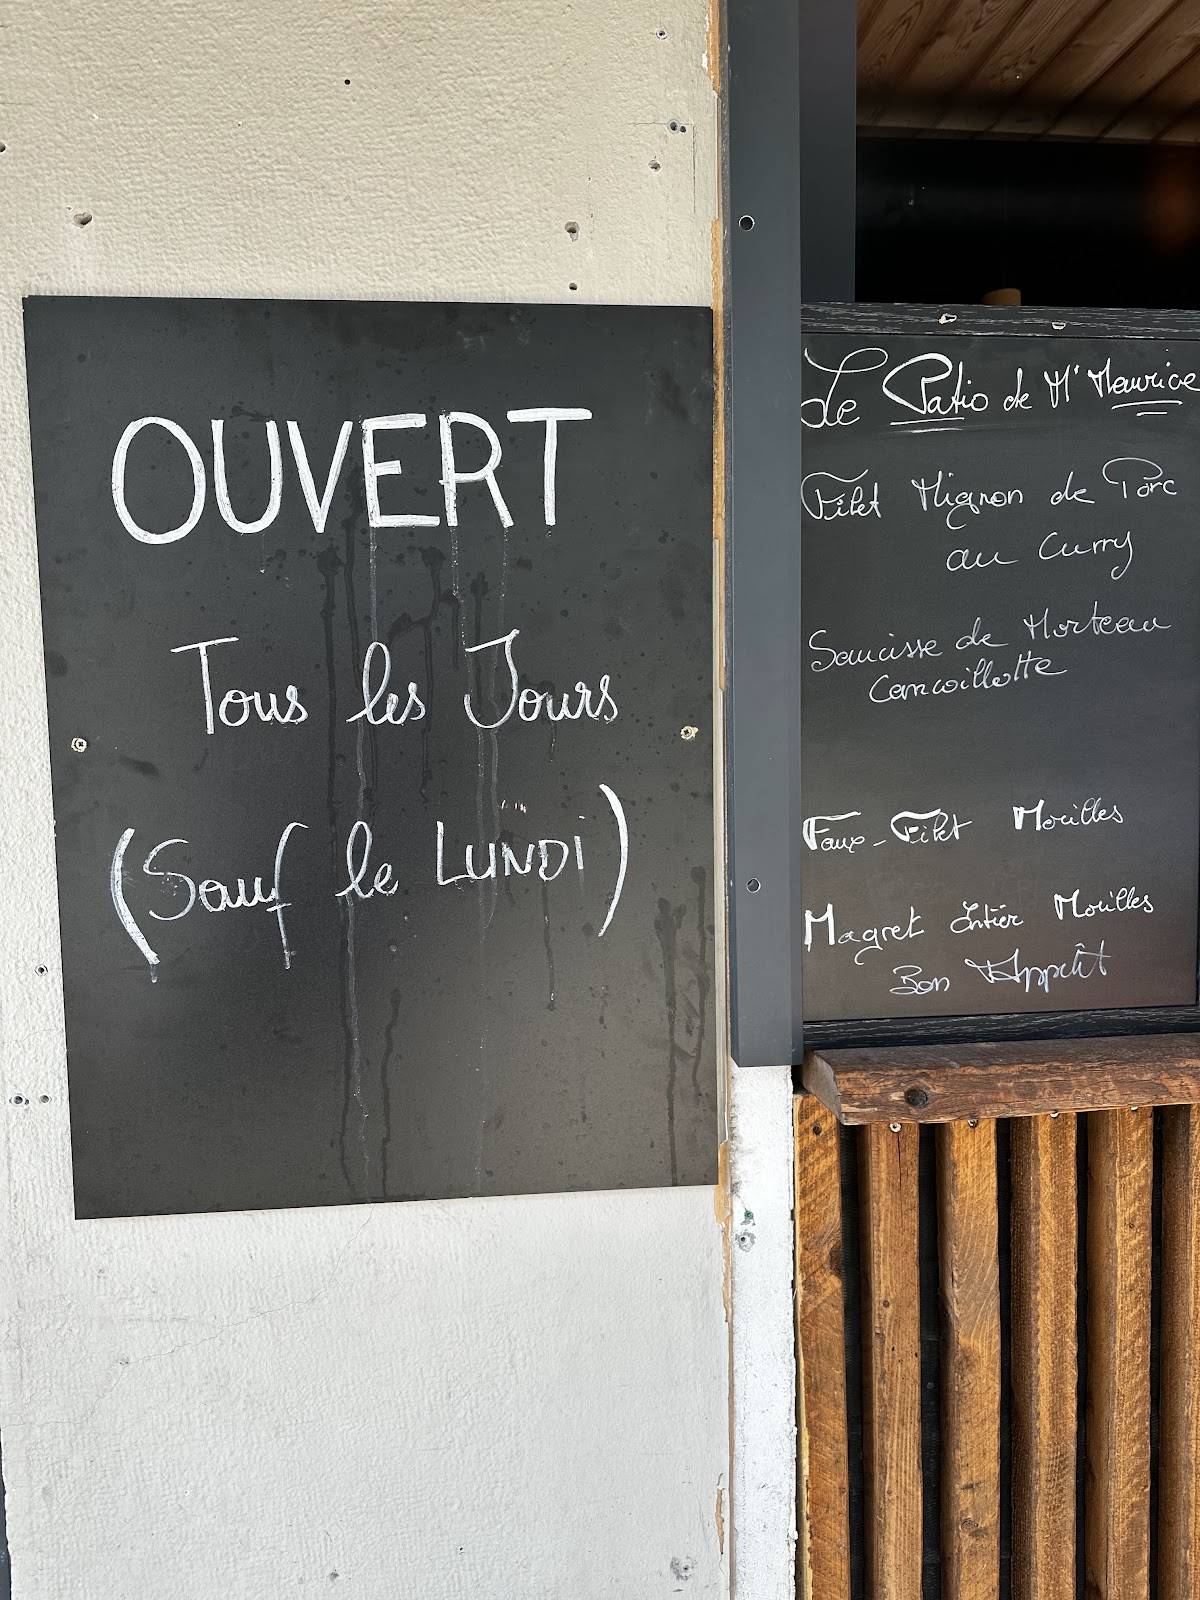 OUVERT
Tous les Jours
(Sauf le LUNDI)
Le Patio de Mr Maurice
Filet Mignon de Porc
au Curry
Saucisse de Morteau
Cancoillotte
Faux-Filet Morilles
Magret Entier Morilles
Bon Appétit